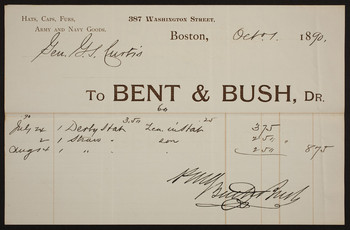 Hats, Caps, Furs,
Army and Navy Goods.
387 Washington Street,
Boston, Oct 1. 1890.
Gen. G. S. Curtis
To BENT & BUSH, Dr.
July 24 1 Derby Hat 3.50 in Hat .25 3 75
2 1 Straw " 2 50 "
Aug 4 1 " " 2 50 8 75
Bent & Bush